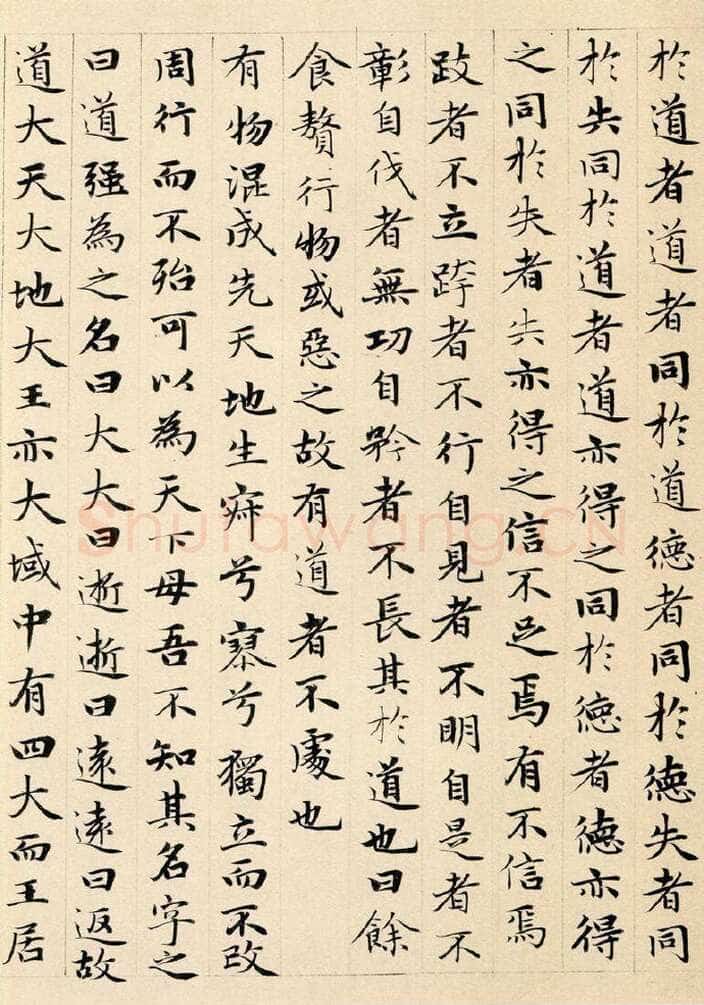 於道者道者同於道德者同於德失者同
於失同於道者道亦得之同於德者德亦得
之同於失者失亦得之信不足焉有不信焉
跂者不立跨者不行自見者不明自是者不
彰自伐者無功自矜者不長其於道也曰餘
食贅行物或惡之故有道者不處也
有物混成先天地生寂兮寥兮獨立而不改
周行而不殆可以為天下母吾不知其名字之
曰道强為之名曰大大曰逝逝曰遠遠曰返故
道大天大地大王亦大域中有四大而王居
Shufawang.CN